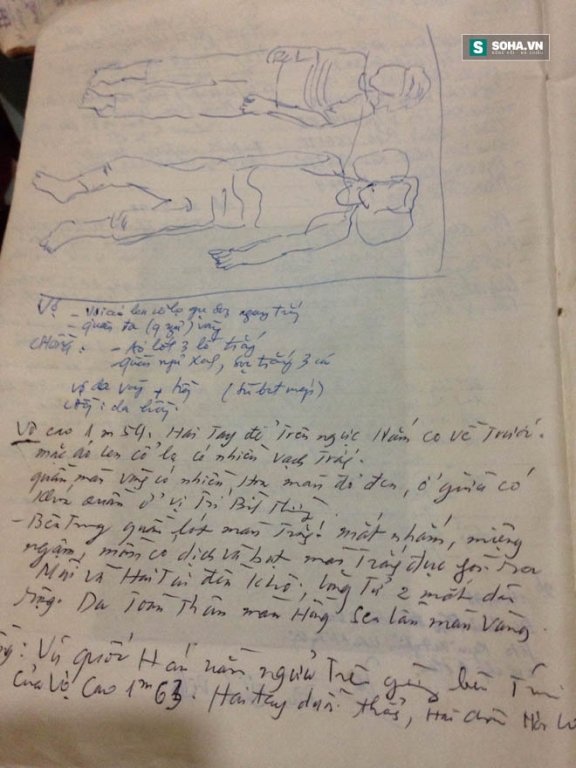 S SOHA.VN
Vợ - Vải áo len cổ lọ đen ngang trắng
- quần ta (q ngủ) vàng
Chồng: - Áo lót 3 lỗ trắng
- quần ngủ xanh, sịp trắng 3 cá
Vợ da vàng + hồng
Chồng: da hồng.
Vợ cao 1m54. Hai Tay để Trên ngực Nắm co về Trước.
mặc áo len cổ lọ có nhiều vạch Trắng.
quần màu vàng có nhiều Hoa màu đỏ đen, ở giữa có
khóa quần ở vị Trí Bình Thường.
- Bên Trong quần lót màu Trắng. mắt nhắm, miệng
ngậm, mồm có dịch và bọt màu Trắng đục
Mũi và Hai Tai đều khô, lòng Tử 2 mắt dãn
rộng. Da Toàn Thân màu Hồng sen lẫn màu Vàng.
Vũ quốc Hán nằm ngửa Trên giường bên Trái
của Vợ Cao 1m63. Hai tay duỗi thẳng, Hai chân